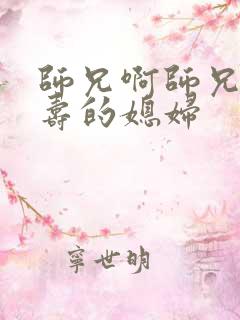 師兄啊師兄
壽的媳婦
寧世明